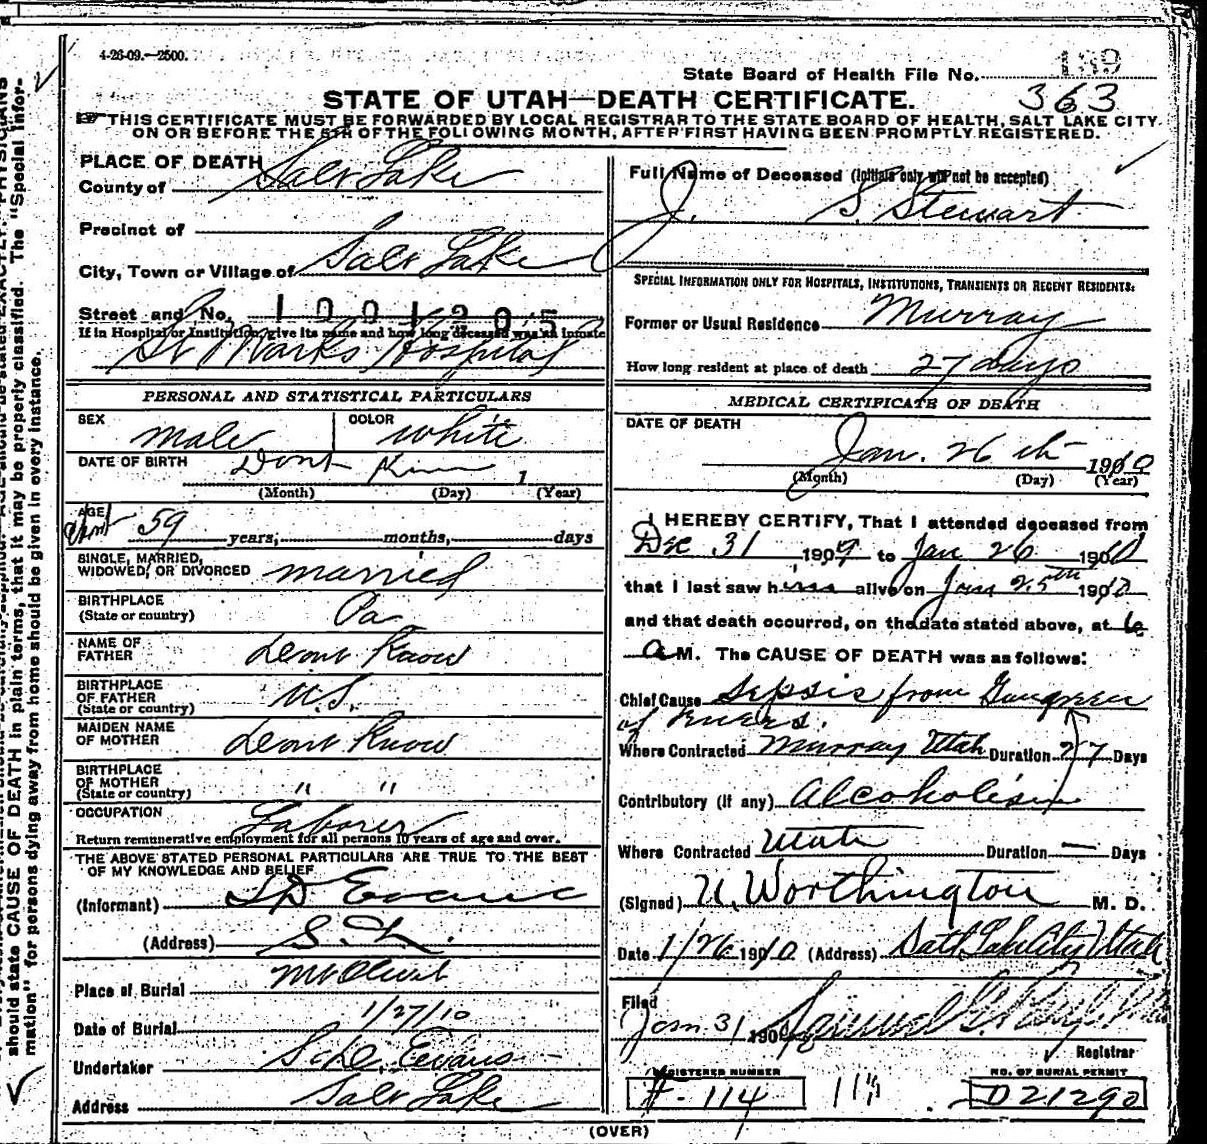 4-26-09.—2500.
189
State Board of Health File No.
363
STATE OF UTAH—DEATH CERTIFICATE.
THIS CERTIFICATE MUST BE FORWARDED BY LOCAL REGISTRAR TO THE STATE BOARD OF HEALTH, SALT LAKE CITY
ON OR BEFORE THE 5TH OF THE FOLLOWING MONTH, AFTER FIRST HAVING BEEN PROMPTLY REGISTERED.
PLACE OF DEATH
County of Salt Lake
Precinct of
City, Town or Village of Salt Lake
Street and No. 1001205
If in Hospital or Institution, give its name and how long deceased was an inmate
St Marks Hospital
Full Name of Deceased (Initials only will not be accepted)
J. S. Stewart
SPECIAL INFORMATION ONLY FOR HOSPITALS, INSTITUTIONS, TRANSIENTS OR RECENT RESIDENTS:
Former or Usual Residence Murray
How long resident at place of death 27 days
PERSONAL AND STATISTICAL PARTICULARS
SEX male COLOR white
DATE OF BIRTH Dont 1
(Month) (Day) (Year)
AGE 59 years, months, days
SINGLE, MARRIED,
WIDOWED, OR DIVORCED married
BIRTHPLACE
(State or country) Pa
NAME OF
FATHER dont Know
BIRTHPLACE
OF FATHER
(State or country) U.S.
MAIDEN NAME
OF MOTHER dont Know
BIRTHPLACE
OF MOTHER
(State or country) " "
OCCUPATION Laborer
Return remunerative employment for all persons 10 years of age and over.
THE ABOVE STATED PERSONAL PARTICULARS ARE TRUE TO THE BEST
OF MY KNOWLEDGE AND BELIEF
(Informant) Evans
(Address) S.L.
Place of Burial Mt Olivet
Date of Burial 1/27/10
Undertaker Evans
Address Salt Lake
MEDICAL CERTIFICATE OF DEATH
DATE OF DEATH
Jan. 26th 1910
(Month) (Day) (Year)
I HEREBY CERTIFY, That I attended deceased from
Dec 31 1909 to Jan 26 1910
that I last saw him alive on Jan 25th 1910
and that death occurred, on the date stated above, at 6
A M. The CAUSE OF DEATH was as follows:
Chief Cause Sepsis from Gangrene
of
Where Contracted Murray Utah Duration 27 Days
Contributory (if any) Alcoholism
Where Contracted Utah Duration — Days
(Signed) U. Worthington M. D.
Date 1/26 1910 (Address) Salt Lake City Utah
Filed
Jan 31 190 Samuel G.
Registrar
REGISTERED NUMBER
#-114
NO. OF BURIAL PERMIT
021290
(OVER)
should state CAUSE OF DEATH in plain terms, that it may be properly classified. The "Special Infor-
mation" for persons dying away from home should be given in every instance.